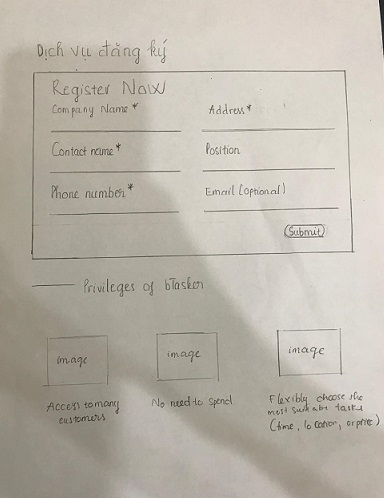 Dịch vụ đăng ký
Register Now
Company Name*
Address*
Contact name*
Position
Phone number*
Email (optional)
Submit
Privileges of bTasker
image
image
image
Access to many
customers
No need to spend
Flexibly choose the
most suitable tasks
(time, location, or price)